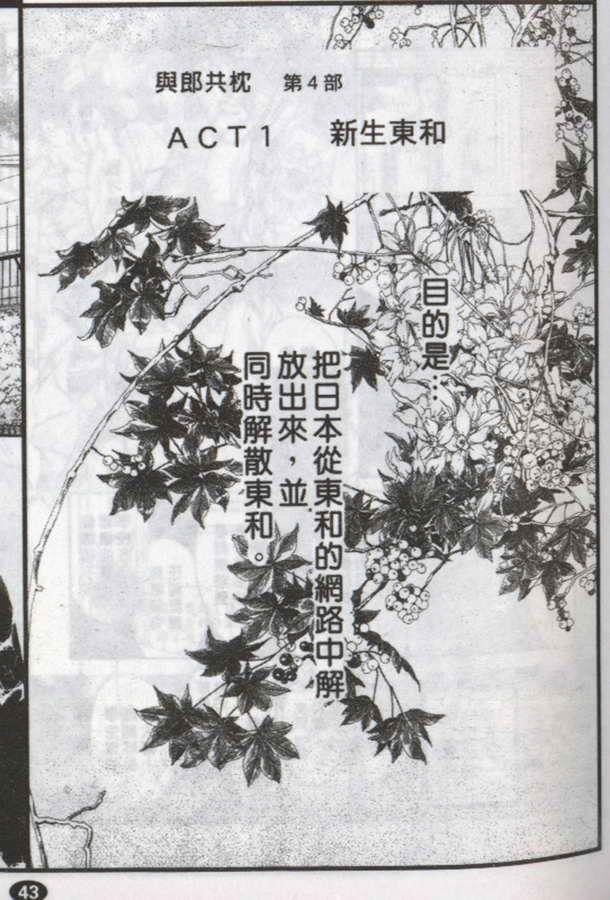 與郎共枕 第4部
ACT1 新生東和
目的是…
把日本從東和的網路中解
放出來，並
同時解散東和。
43